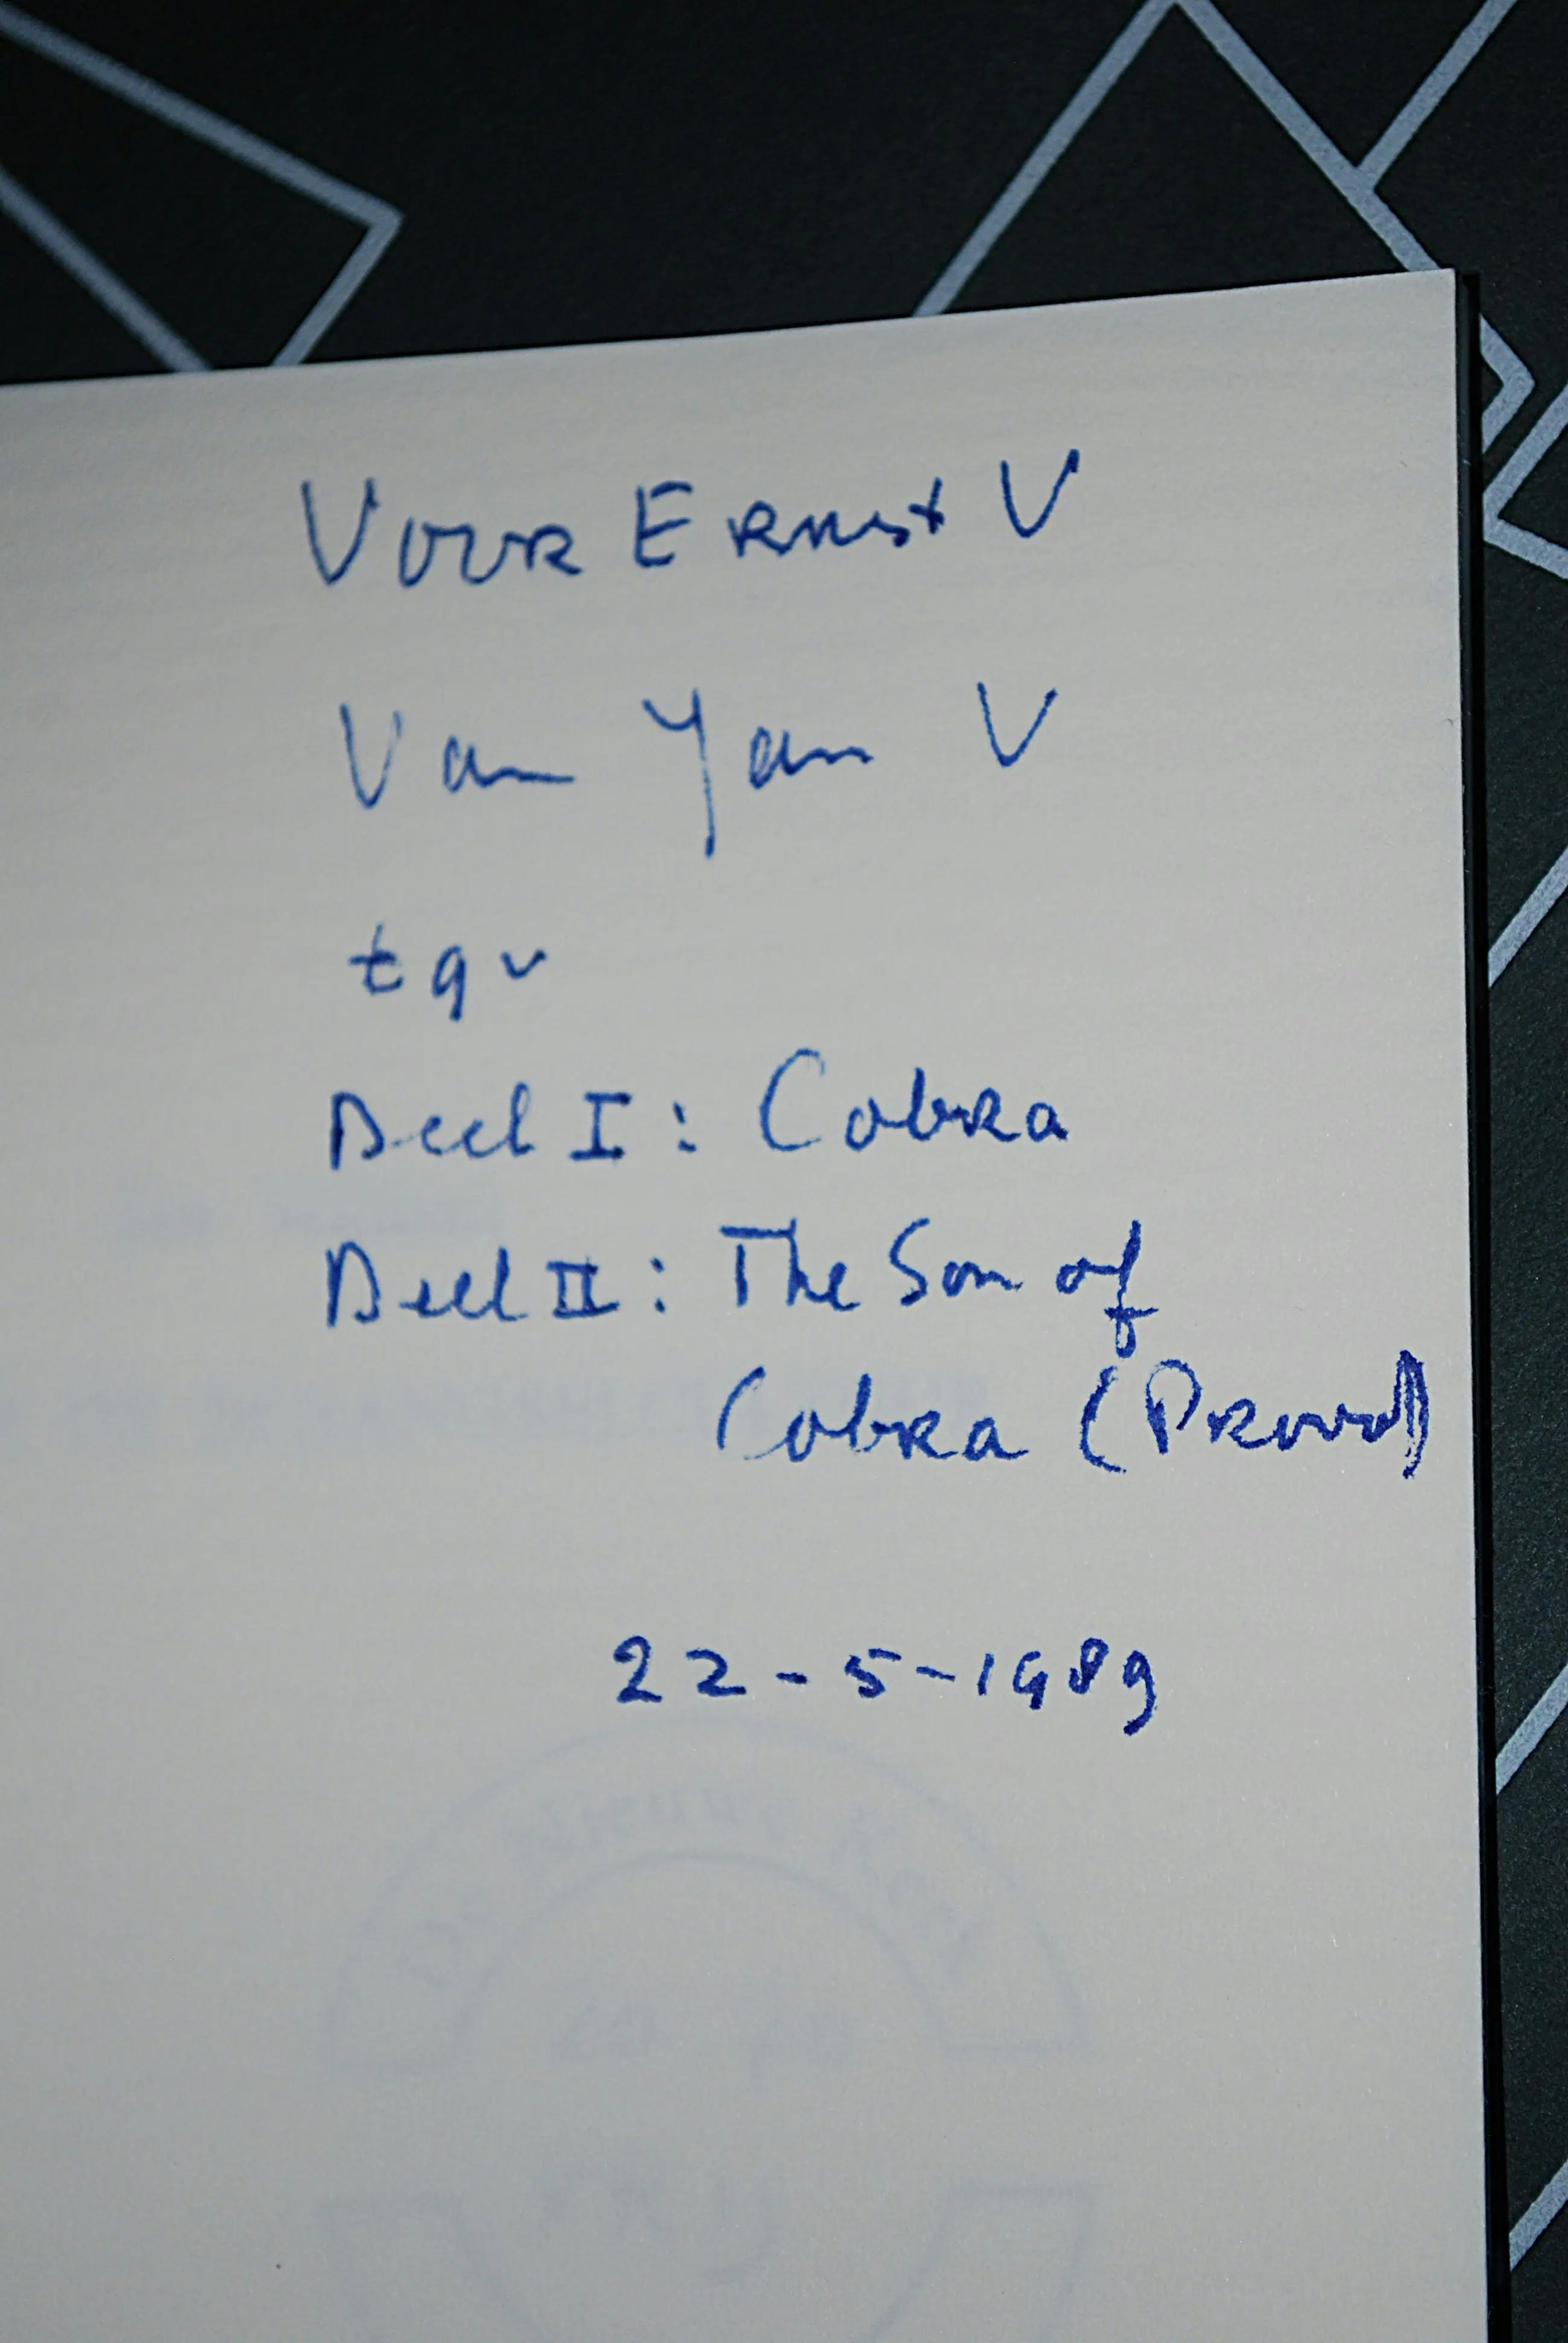 Voor Ernst V
Van Yan V
tgv
Deel I: Cobra
Deel II: The Son of
Cobra (Provo)
22-5-1989